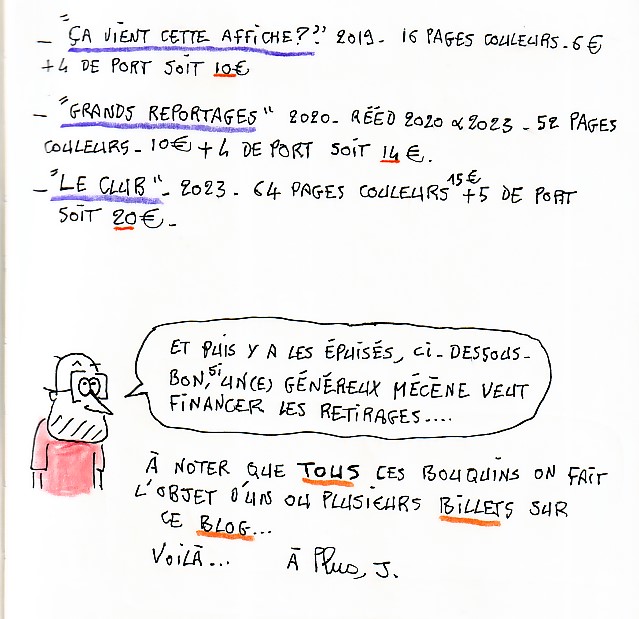 — "ÇA VIENT CETTE AFFICHE?" 2019- 16 PAGES COULEURS-6€
+4 DE PORT SOIT 10€
— "GRANDS REPORTAGES" 2020- RÉÉD 2020 & 2023 - 52 PAGES
COULEURS- 10€ +4 DE PORT SOIT 14€.
— "LE CLUB"- 2023- 64 PAGES COULEURS 15€ +5 DE PORT
SOIT 20€-
ET PUIS Y A LES ÉPUISÉS, CI-DESSOUS-
BON, SI UN(E) GÉNÉREUX MÉCÈNE VEUT
FINANCER LES RETIRAGES....
À NOTER QUE TOUS CES BOUQUINS ON FAIT
L'OBJET D'UN OU PLUSIEURS BILLETS SUR
CE BLOG...
VOILÀ... À Plus, J.